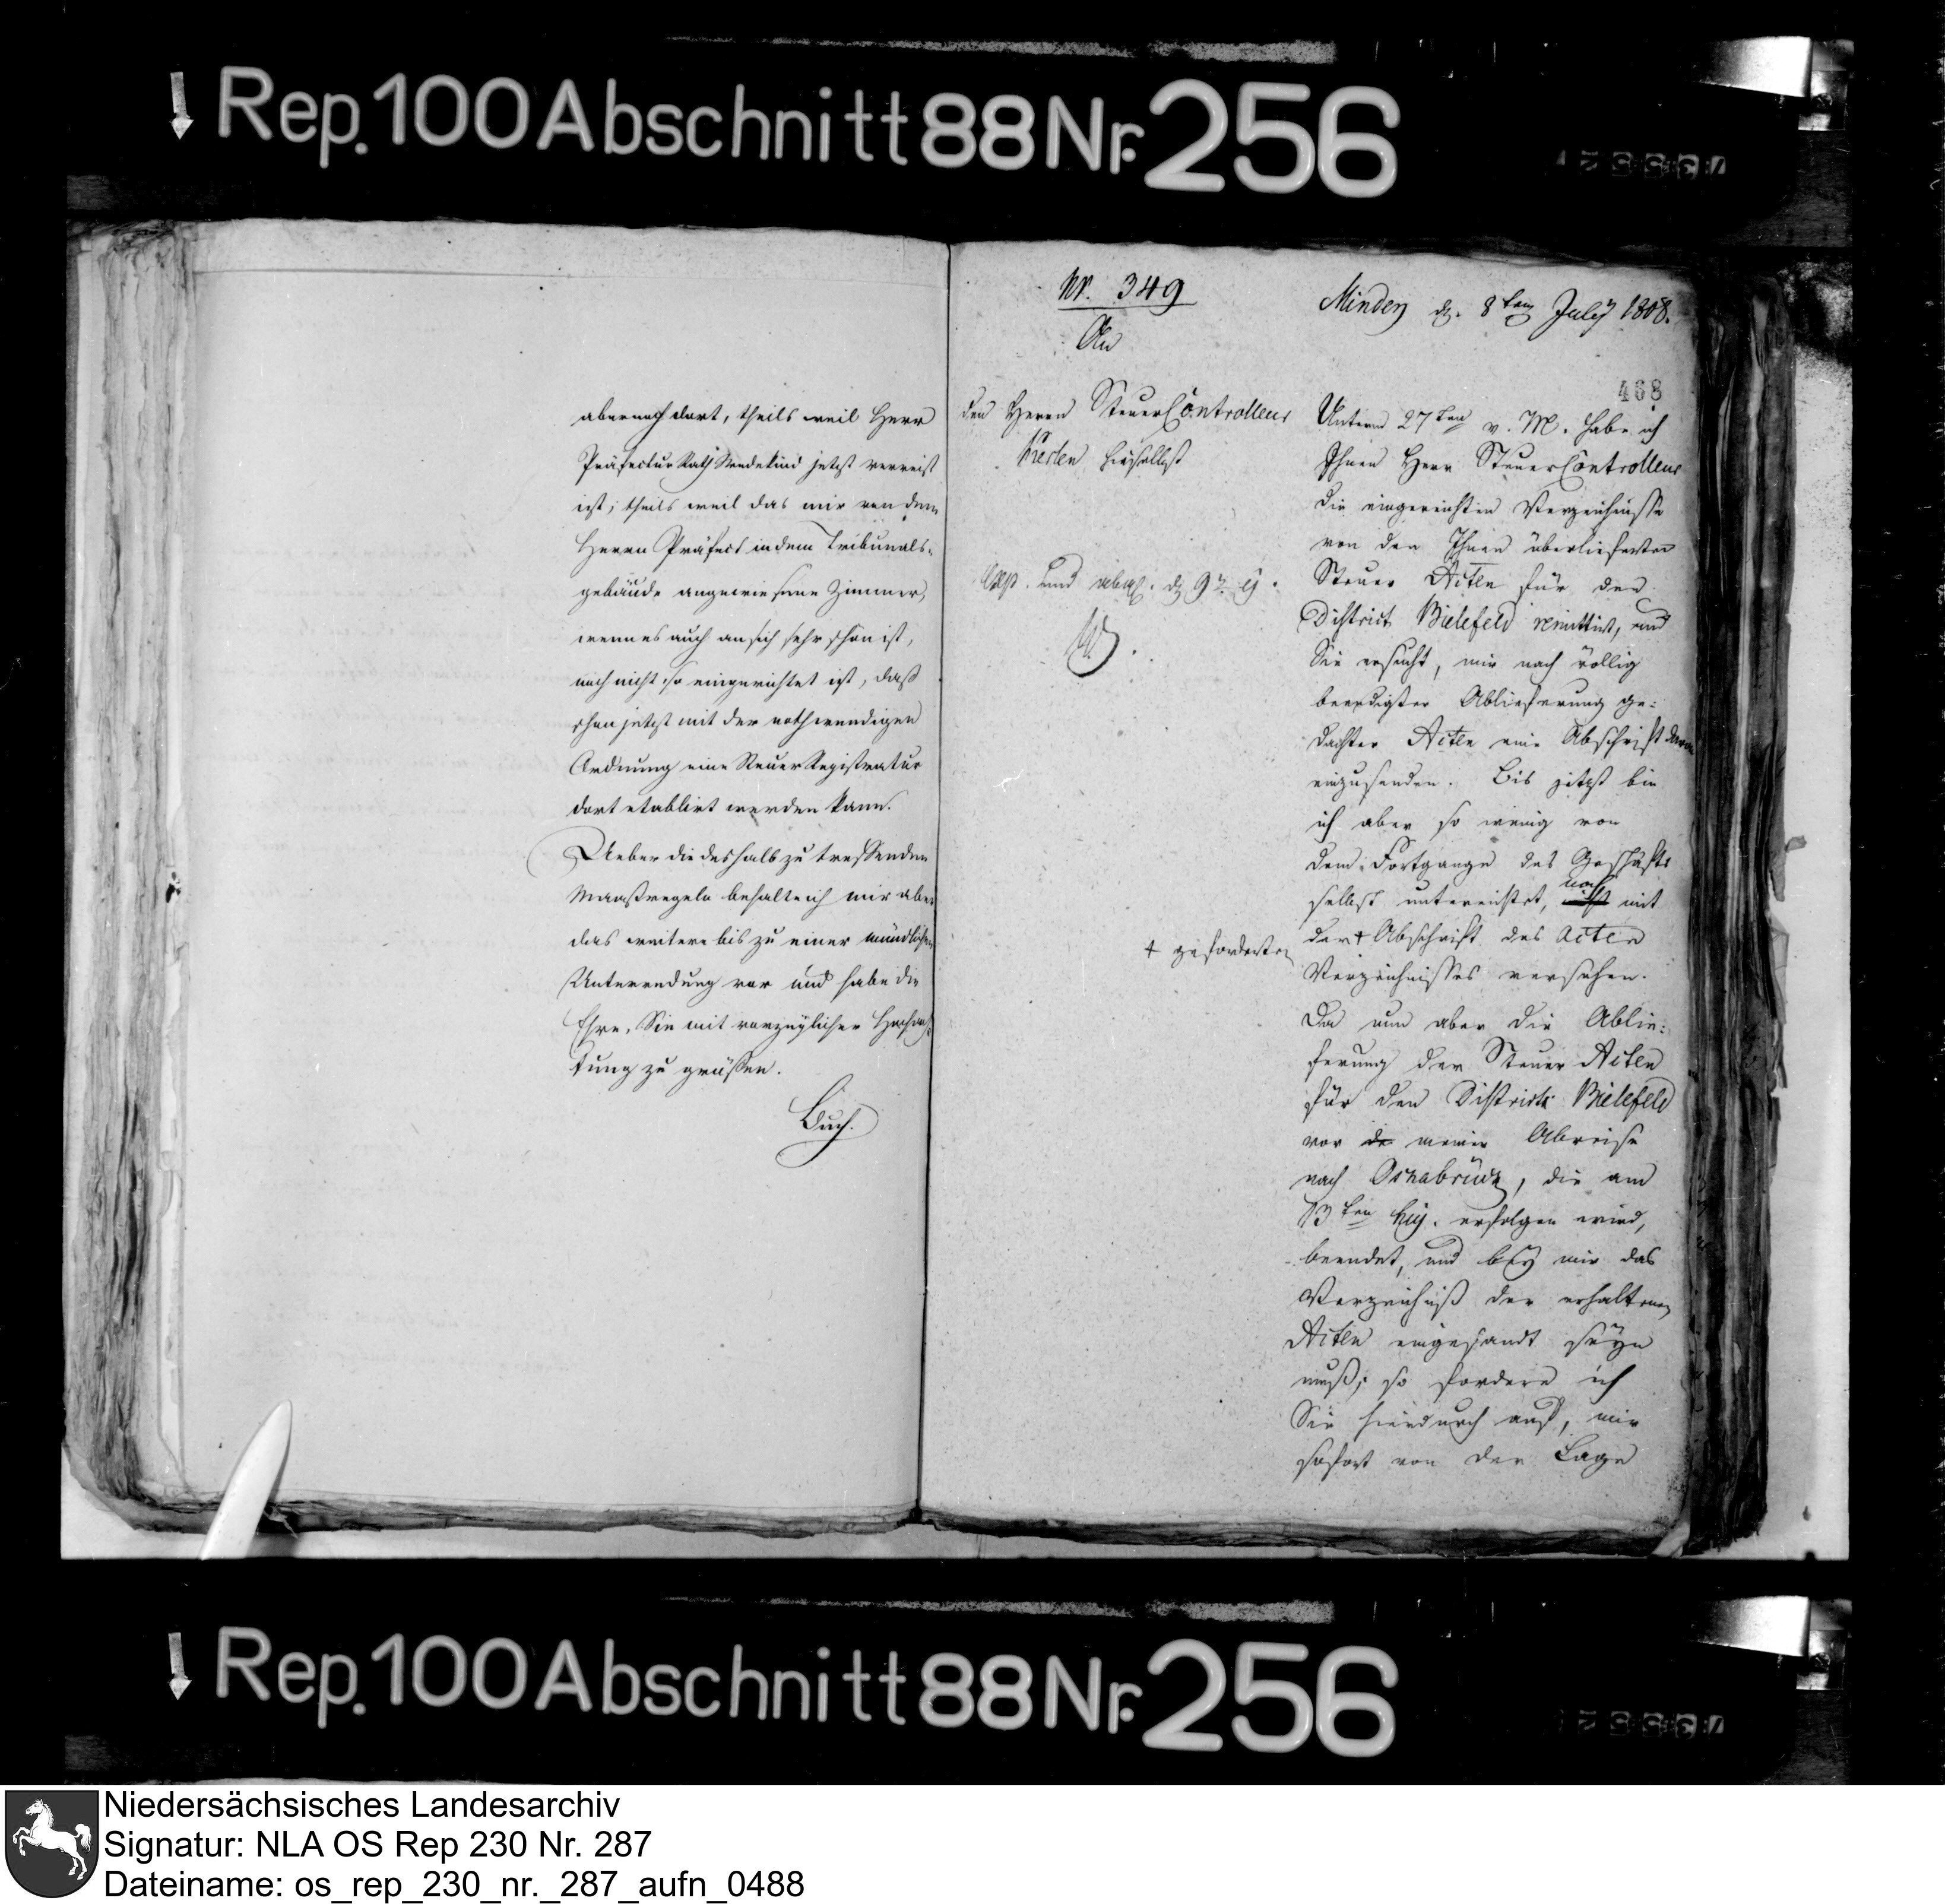 Rep. 100 Abschnitt 88 Nr. 256
aber noch dort, theils weil Herr
Präfectur Rath Wedekind jetzt verreist
ist; theils weil das mir von dem
Herrn Präfect in dem Tribunals-
gebäude angewiesene Zimmer,
wenn es auch an sich sehr schön ist,
noch nicht so eingerichtet ist, daß
schon jetzt mit der nothwendigen
Ordnung eine Steuer Registratur
dort etablirt werden kann.
Ueber die deshalb zu treffenden
Maaßregeln behalte ich mir aber
das weitere bis zu einer mündlichen
Unterredung vor und habe die
Ehre, Sie mit vorzüglicher Hochach-
tung zu grüßen.
Buch.
Nr. 349
An
den Herrn SteuerControlleur
hieselbst
und d 9t ej.
+ geforderten
Minden d. 8ten July 1808.
468
Unterm 27ten v. M. habe ich
Ihnen Herr SteuerControlleur
die eingereichten Verzeichnisse
von den Ihnen überlieferten
Steuer Acten für den
District Bielefeld remittirt, und
Sie ersucht, mir nach völlig
beendigter Ablieferung ge-
dachter Acten eine Abschrift davon
einzusenden. Bis jetzt bin
ich aber so wenig von
dem Fortgange des Geschäfts
selbst unterrichtet, noch mit
der + Abschrift des Acten
Verzeichnisses versehen.
Da nun aber die Ablie-
ferung der Steuer Acten
für den District Bielefeld
vor de meiner Abreise
nach Osnabrück, die am
13ten huj. erfolgen wird,
beendet, und bey mir das
Verzeichniß der erhaltenen
Acten eingesandt seyn
muß; so fordere ich
Sie hierdurch auf, mir
sofort von der Lage
Rep. 100 Abschnitt 88 Nr. 256
Niedersächsisches Landesarchiv
Signatur: NLA OS Rep 230 Nr. 287
Dateiname: os_rep_230_nr._287_aufn_0488